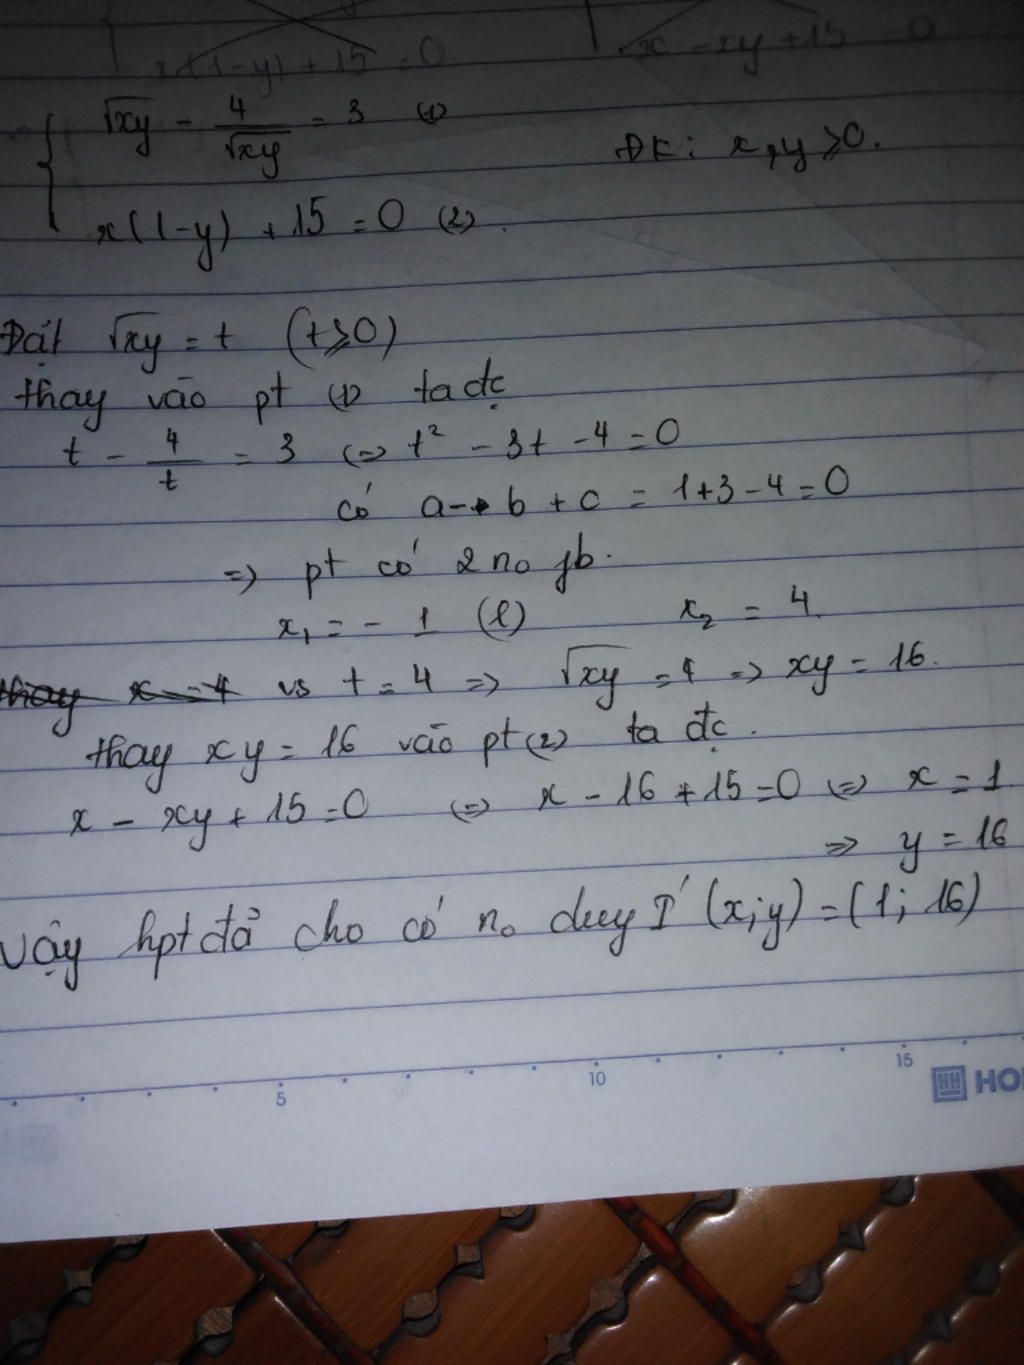 x(1-y) + 15 = 0
x - xy + 15 = 0
√xy - 4/√xy = 3 (1)
ĐK: x, y ⩾ 0.
x(1-y) + 15 = 0 (2).
Đặt √xy = t (t ⩾ 0)
thay vào pt (1) ta đc
t - 4/t = 3 (=) t² - 3t - 4 = 0
có a - b + c = 1 + 3 - 4 = 0
=) pt có 2 no pb.
x₁ = - 1 (l) x₂ = 4
thay x = 4 vs t = 4 => √xy = 4 => xy = 16.
thay xy = 16 vào pt (2) ta đc.
x - xy + 15 = 0 (=) x - 16 + 15 = 0 (=) x = 1
=> y = 16
Vậy hpt đã cho có no duy I' (x; y) = (1; 16)
5 10 15
HH HO